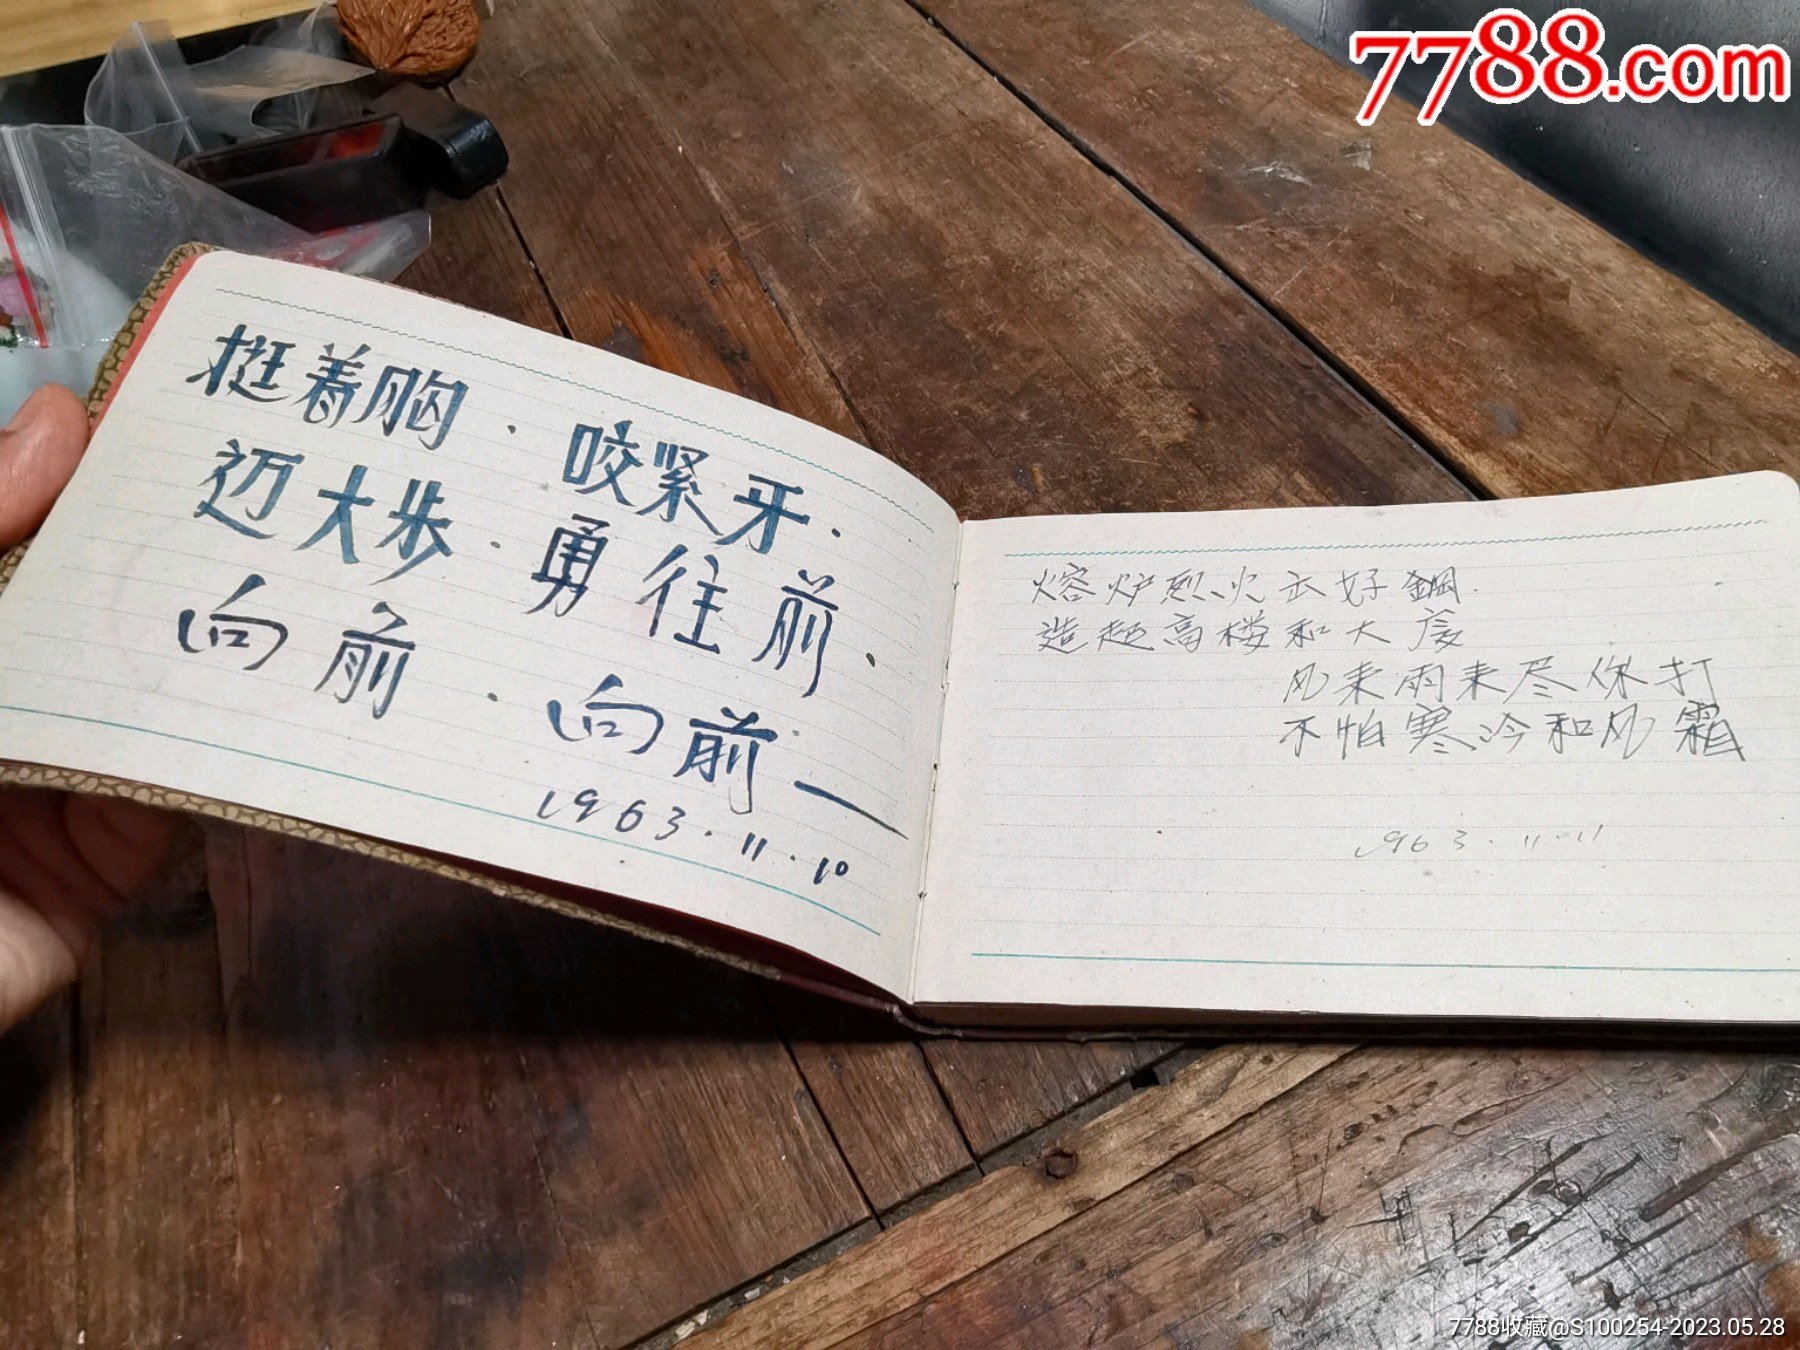 7788.com
挺着胸·咬紧牙·
迈大步·勇往前·
向前·向前—
1963·11·10
熔炉烈火出好鋼·
造起高楼和大厦
风来雨来尽你打
不怕寒冷和风霜
1963·11·11
7788收藏@S100254-2023.05.28